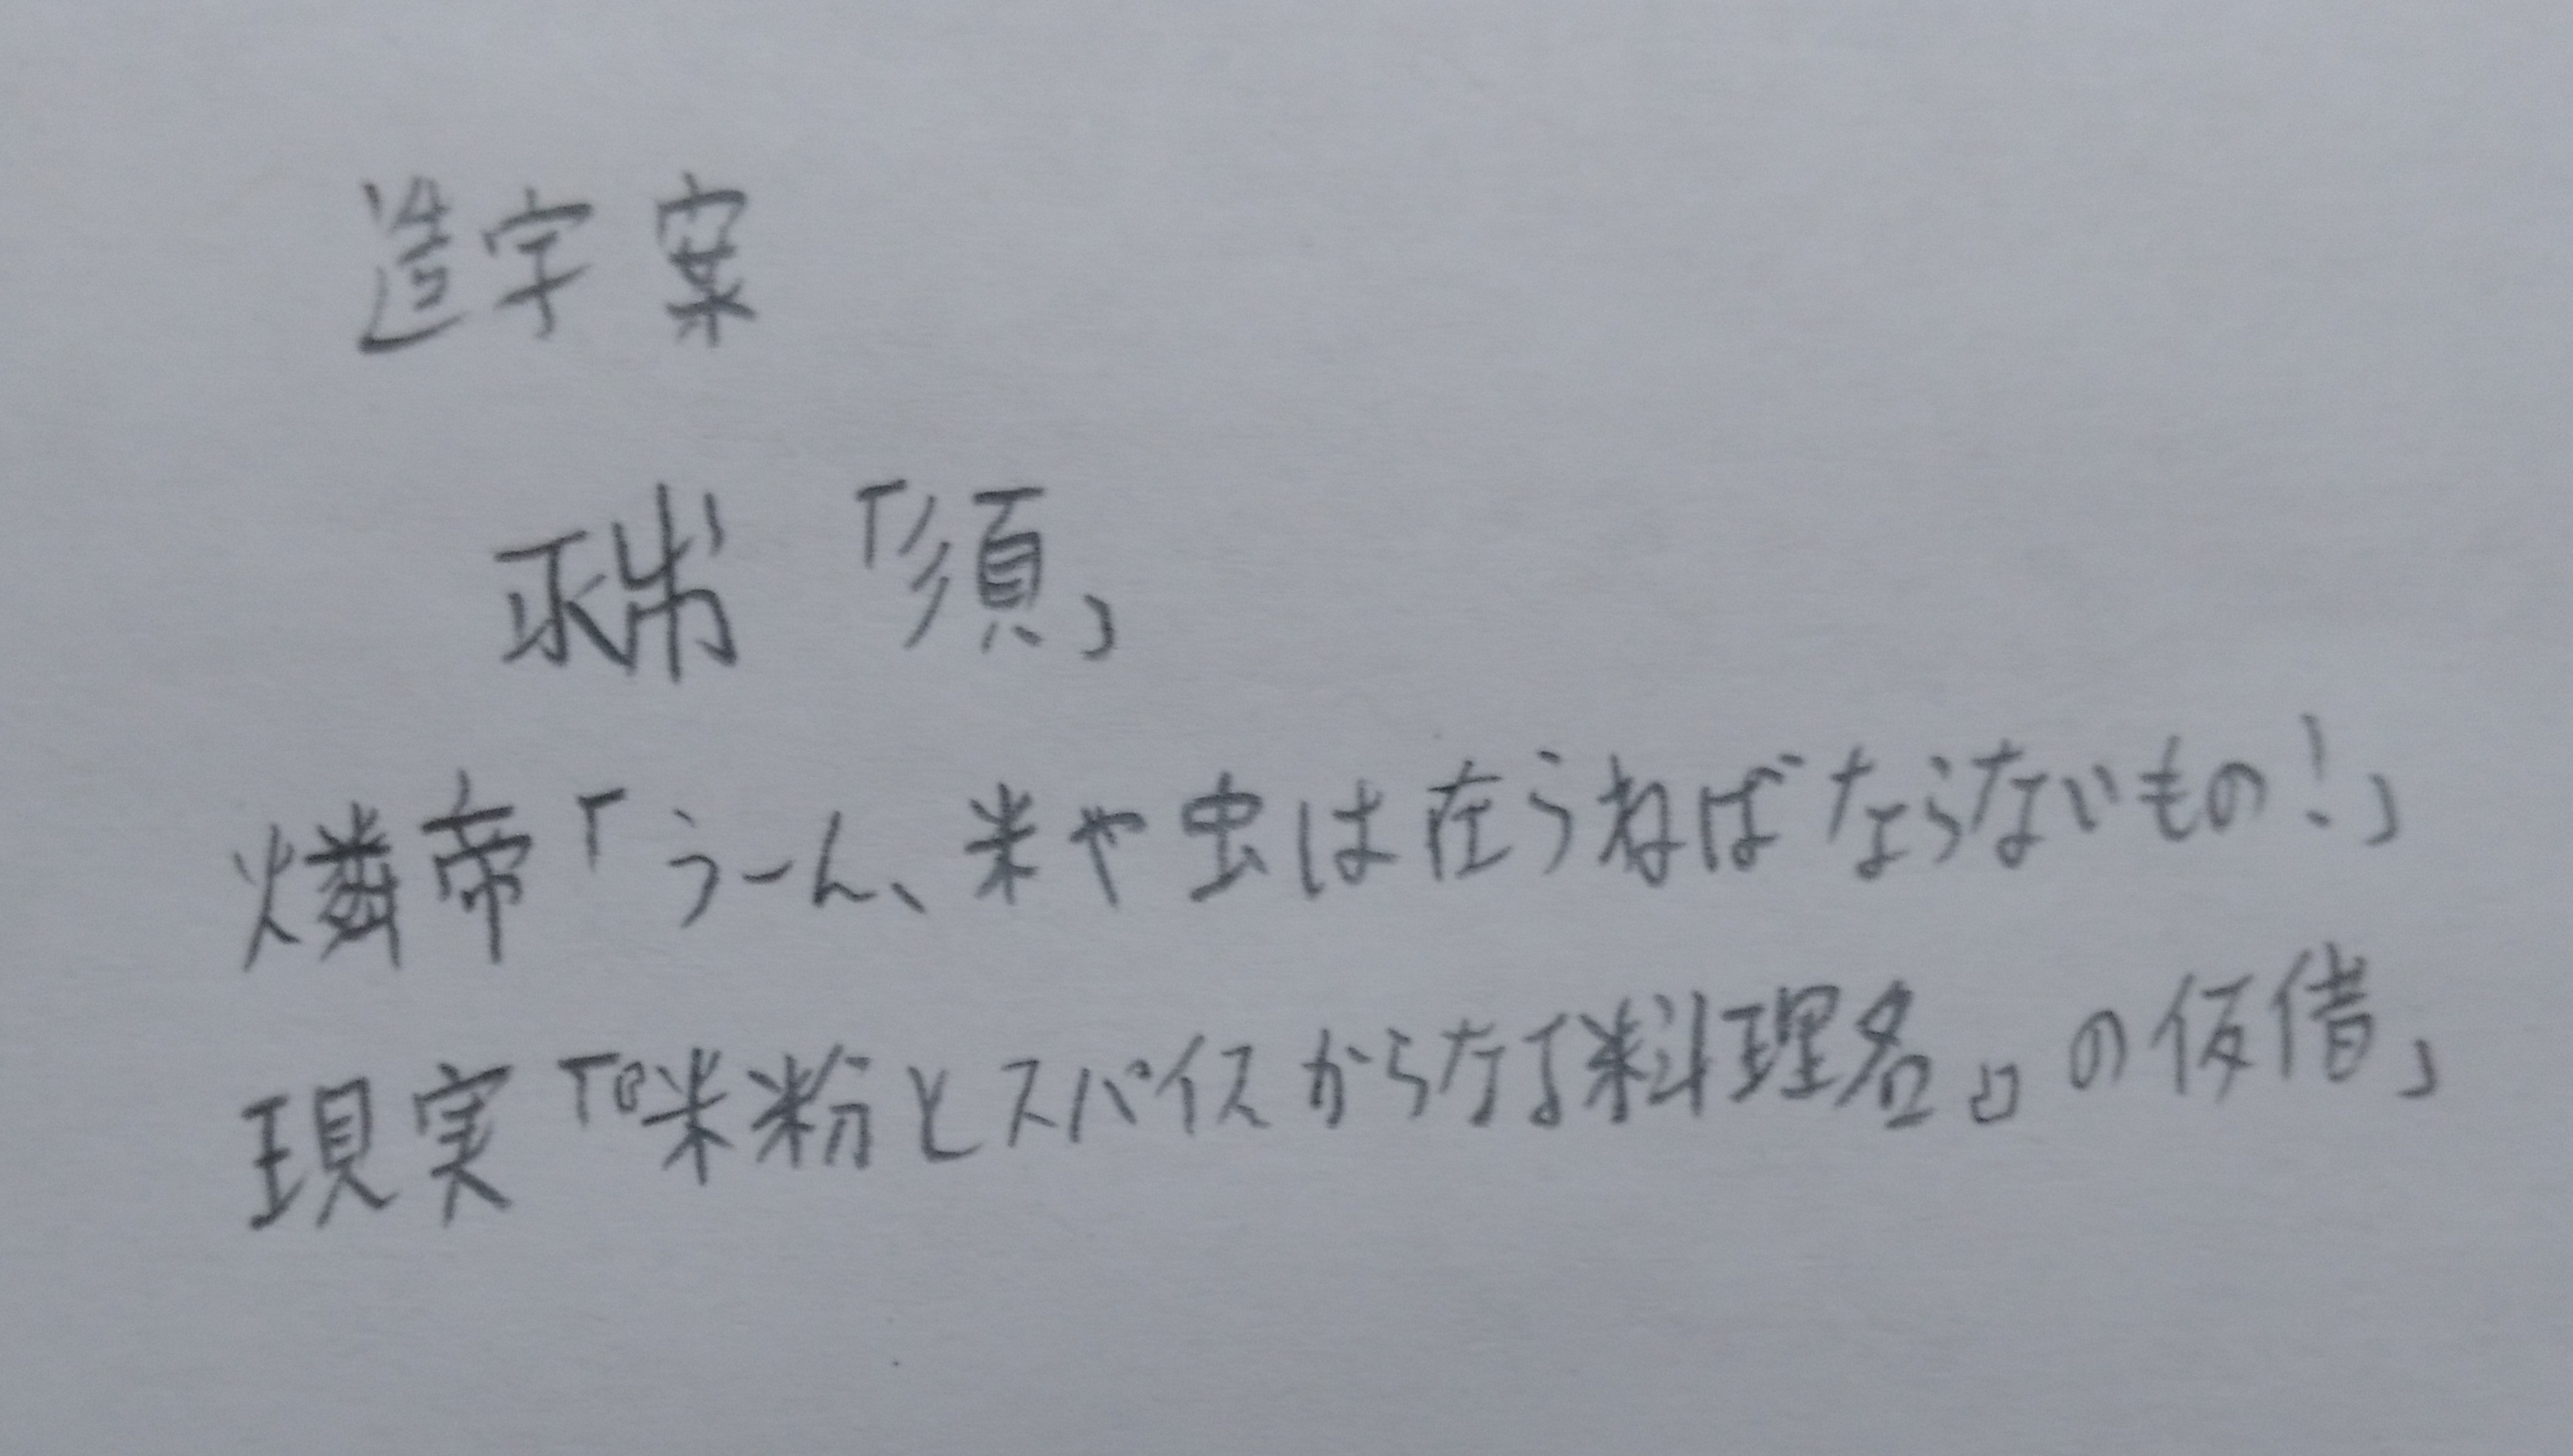 造字案
「須」
燐帝「うーん、米や虫は在らねばならないもの!」
現実「『米粉とスパイスからなる料理名』の仮借」